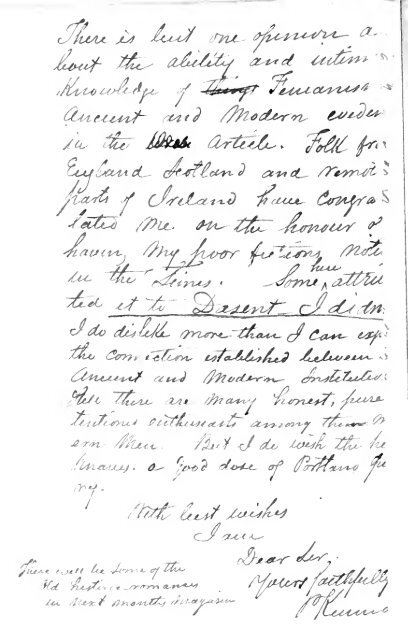 There is but one opinion a
bout the ability and intim
Knowledge of Things Fenianism
Ancient and Modern eviden
in the Article. Folk fro
England Scotland and remot
parts of Ireland have congra
lated me on the honour o
having my poor fictions noti
in the Times. Some here attribu
ted it to Dasent I didn
I do dislike more than I can exp
the connection established between
Ancient and Modern Institutio
there are many honest, pure
tentioned enthusiasts among the
ern Men. But I do wish the
Knaves a good dose of Portland
ry.
With best wishes
I am
Dear Sir.
Yours faithfully
P Kenne
There will be some of the
old romances
in next months magazin